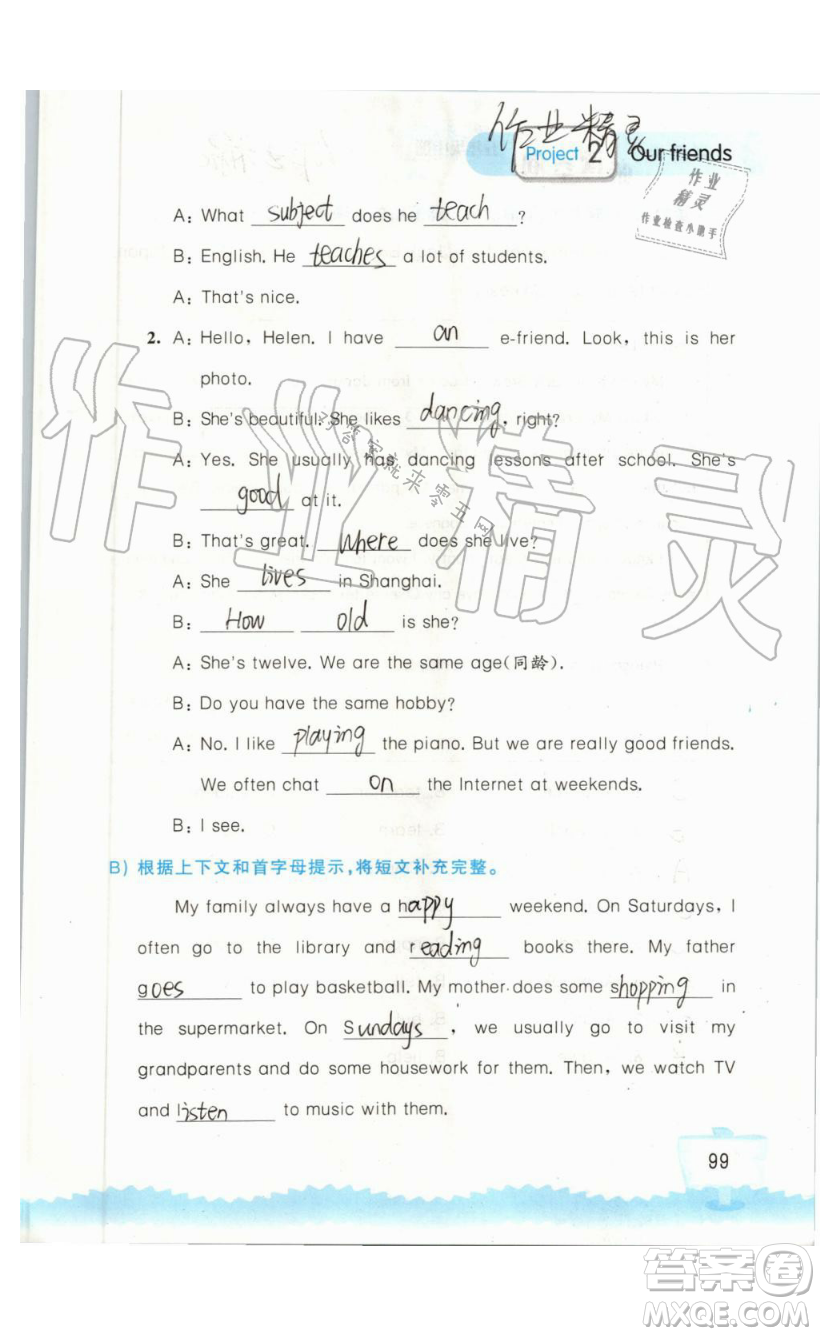 作业精灵
Project 2 Our friends
作业
精灵
作业检查小能手
A: What subject does he teach ?
B: English. He teaches a lot of students.
A: That's nice.
2. A: Hello, Helen. I have an e-friend. Look, this is her
photo.
B: She's beautiful. She likes dancing, right?
A: Yes. She usually has dancing lessons after school. She's
good at it.
B: That's great. Where does she live?
A: She lives in Shanghai.
B: How old is she?
A: She's twelve. We are the same age(同龄).
B: Do you have the same hobby?
A: No. I like playing the piano. But we are really good friends.
We often chat on the Internet at weekends.
B: I see.
作业精灵
B) 根据上下文和首字母提示,将短文补充完整。
My family always have a happy weekend. On Saturdays, I
often go to the library and reading books there. My father
goes to play basketball. My mother does some shopping in
the supermarket. On Sundays, we usually go to visit my
grandparents and do some housework for them. Then, we watch TV
and listen to music with them.
99
答案卷
MXQE.COM